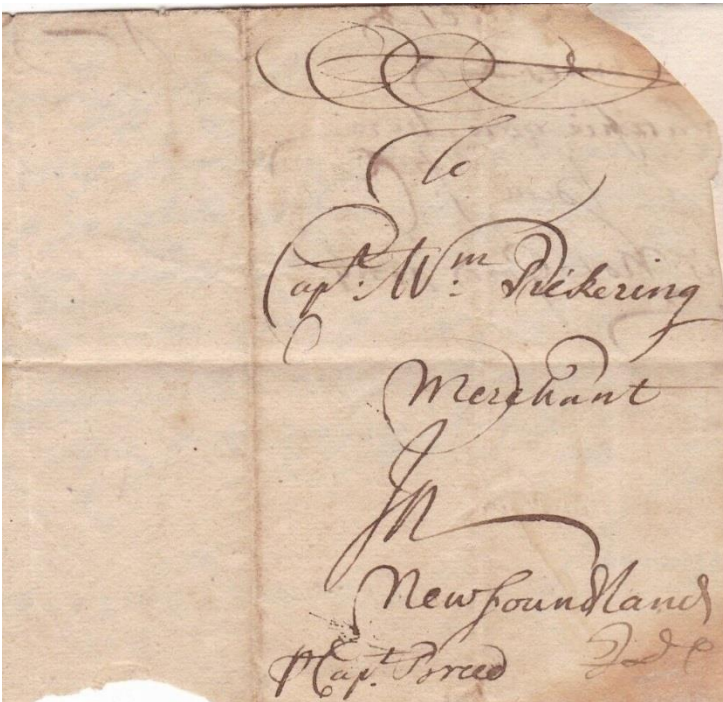 To
Capt: Wm: Pickering
Merchant
In
Newfoundland
P Capt. Breed